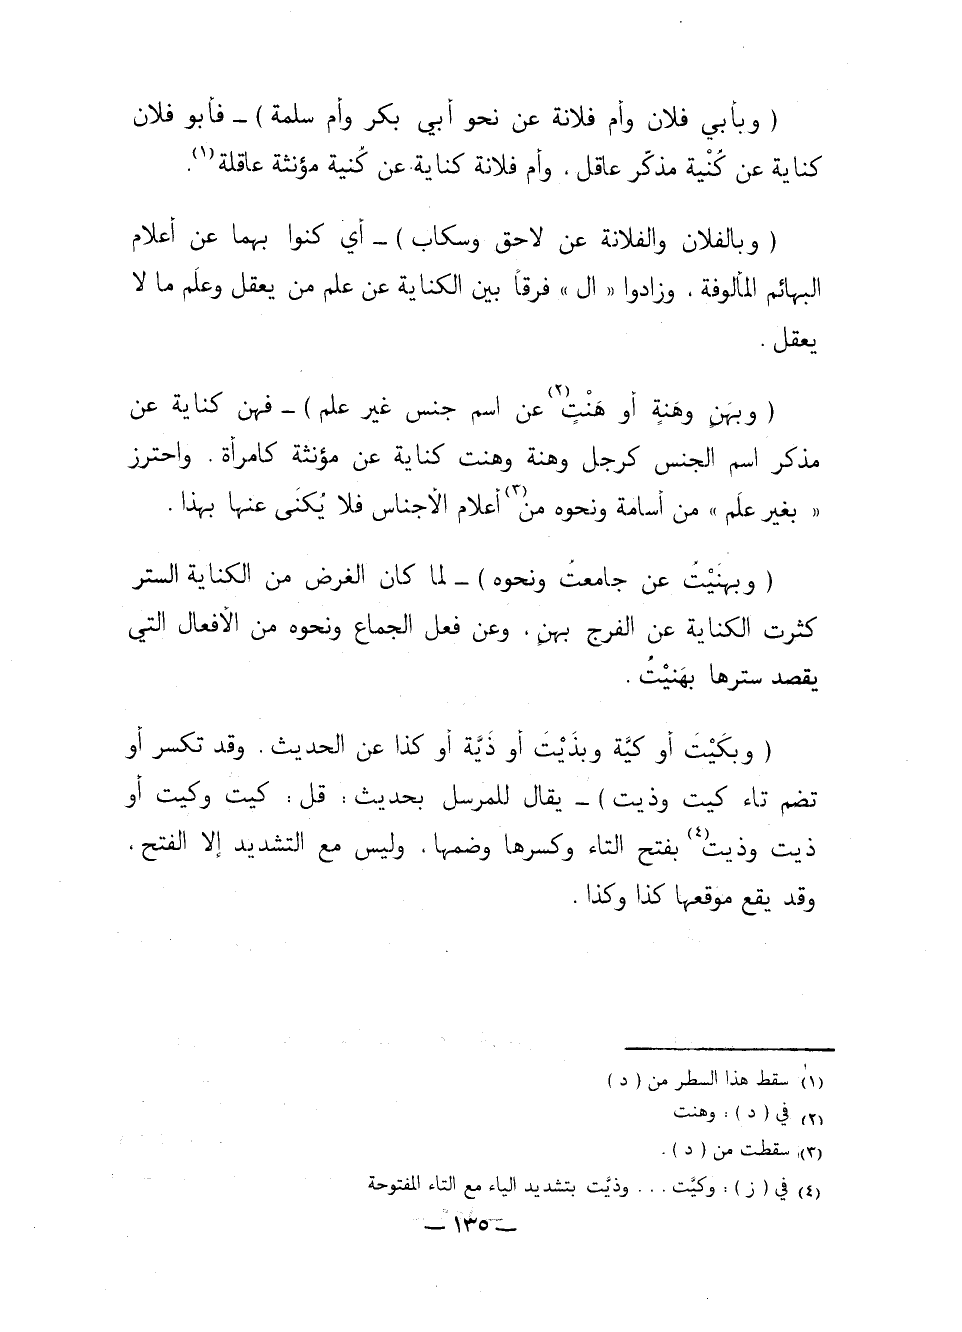 ( وبأبي فلان وأم فلانة عن نحو أبي بكر وأم سلمة ) ــ فأبو فلان
كناية عن كُنْية مذكّر عاقل ، وأم فلانة كناية عن كُنية مؤنثة عاقلة(١).
( وبالفلان والفلانة عن لاحق وسكاب ) ــ أي كنوا بهما عن أعلام
البهائم المألوفة ، وزادوا « ال » فرقاً بين الكناية عن علم من يعقل وعلَم ما لا
يعقل .
( وبهَنٍ وهَنةٍ أو هَنْتٍ(٢) عن اسم جنس غير علم ) ــ فهن كناية عن
مذكر اسم الجنس كرجل وهنة وهنت كناية عن مؤنثة كامرأة . واحترز
« بغير علَم » من أسامة ونحوه من(٣) أعلام الأجناس فلا يُكنَى عنها بهذا .
( وبهنَيْتُ عن جامعتُ ونحوه ) ــ لما كان الغرض من الكناية الستر
كثرت الكناية عن الفرج بهنٍ ، وعن فعل الجماع ونحوه من الأفعال التي
يقصد سترها بهَنيْتُ .
( وبكَيْتَ أو كيَّة وبذَيْتَ أو ذَيَّة أو كذا عن الحديث . وقد تكسر أو
تضم تاء كيت وذيت ) ــ يقال للمرسل بحديث : قل : كيت وكيت أو
ذيت وذيت(٤) بفتح التاء وكسرها وضمها ، وليس مع التشديد إلا الفتح ،
وقد يقع موقعها كذا وكذا .
(١) سقط هذا السطر من ( د )
(٢) في ( د ) : وهنت
(٣) سقطت من ( د ) .
(٤) في ( ز ) : وكيَّت ... وذيَّت بتشديد الياء مع التاء المفتوحة
ــ ١٣٥ ــ